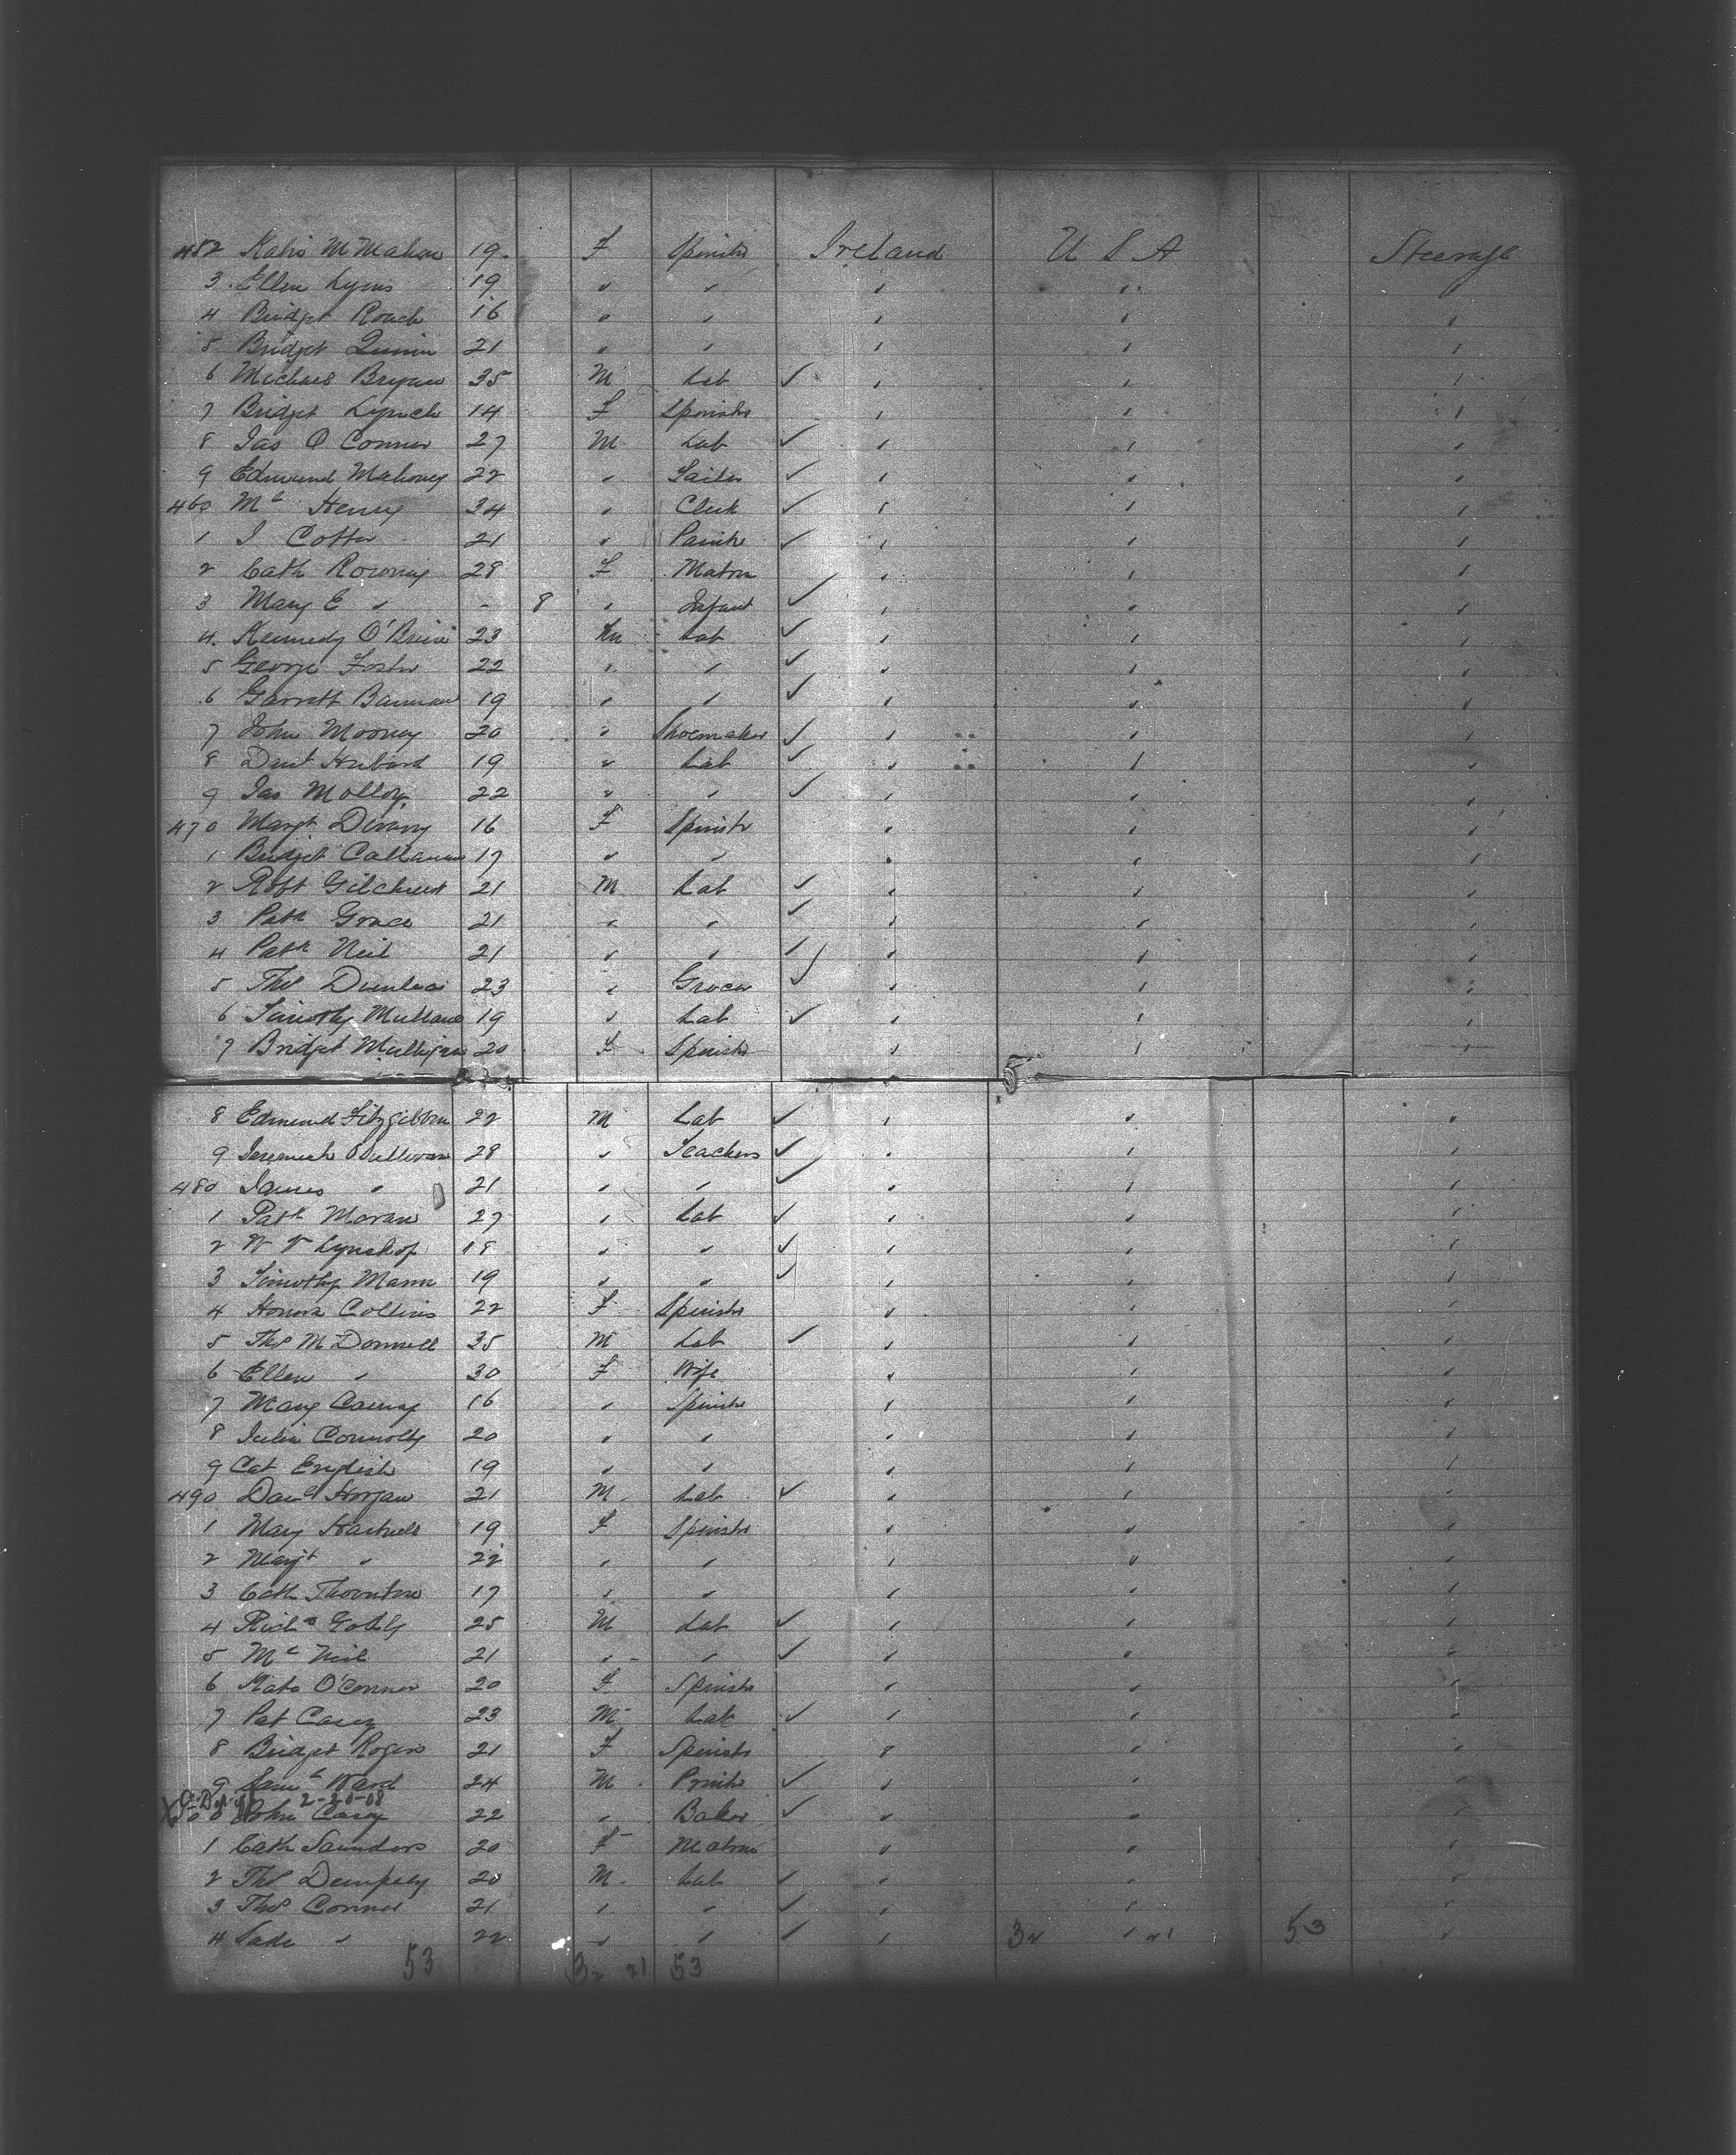 452 Katie McMahon 19 F Spinster Ireland U S A Steerage
3 Ellen Lyons 19 " " " " "
4 Bridget Roach 16 " " " " "
5 Bridget Quinn 21 " " " " "
6 Michael Bryan 35 M Lab ✓ " " "
7 Bridget Lynch 14 F Spinster " " "
8 Jas O Connor 27 M Lab ✓ " " "
9 Edmund Mahoney 22 " ✓ " " "
460 Mc Henry 34 " Clerk ✓ " " "
1 J Cotter 21 " Painter ✓ " " "
2 Cath 28 F Matron " " "
3 Mary E " - 8 " Infant ✓ " " "
4 Kennedy O'Brien 23 M Lab ✓ " " "
5 George Foster 22 " " ✓ " " "
6 Garrett 19 " " ✓ " " "
7 John Mooney 20 " Shoemaker ✓ " " "
8 19 " Lab ✓ " " "
9 Jas Molloy 22 " " ✓ " " "
470 Margt 16 F Spinster " " "
1 Bridget Callanan 17 " " " " "
2 Robt Gilchrist 21 M Lab ✓ " " "
3 Patk Grace 21 " " ✓ " " "
4 Patk Neil 21 " " ✓ " " "
5 Thos 23 " Grocer ✓ " " "
6 Timothy Mullane 19 " Lab ✓ " " "
7 Bridget Mulligan 20 F Spinster " " "
5
8 Edmund Fitzgibbon 22 M Lab ✓ " " "
9 Jeremiah OSullivan 28 " Teachers ✓ " " "
480 James " 21 " " ✓ " " "
1 Patk Moran 27 " Lab ✓ " " "
2 18 " " ✓ " " "
3 Timothy Mann 19 " " ✓ " " "
4 Honora Collins 22 F Spinster " " "
5 Thos McDonnell 35 M Lab ✓ " " "
6 Ellen " 30 F Wife " " "
7 Mary 16 " Spinster " " "
8 Julia Connolly 20 " " " " "
9 Cat English 19 " " " " "
490 Danl Horgan 21 M Lab ✓ " " "
1 Mary Hartnell 19 F Spinster " " "
2 Margt " 22 " " " " "
3 Cath Thornton 17 " " " " "
4 Richd 25 M Lab ✓ " " "
5 Mc Neil 21 " " ✓ " " "
6 Kate O'Connor 20 F Spinster " " "
7 Pat Casey 23 M Lab ✓ " " "
8 Bridget Rogers 21 F Spinster " " "
9 Saml Ward 24 M ✓ " " "
2-20-08
500 John Casey 22 " Baker ✓ " " "
1 Cath Saunders 20 F Matron " " "
2 Thos Dempsey 20 M Lab ✓ " " "
3 Thos Connor 21 " " ✓ " " "
4 " 22 " " ✓ " 32 " 21 53 "
53 32 21 53